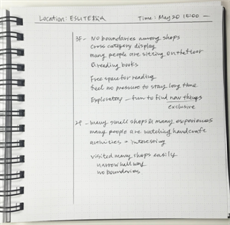 Location: ESLITE Time: May 20 15:00 —
3F - NO boundaries among shops
category display
many people are sitting on the floor
& reading books
Free space for reading
feel no pressure to stay long time
Exploratory - fun to find new things
exclusive
2F - many small shops & many experiences
many people are watching handcraft
activities + interesting
visited many shops easily
narrow hallway
no boundaries